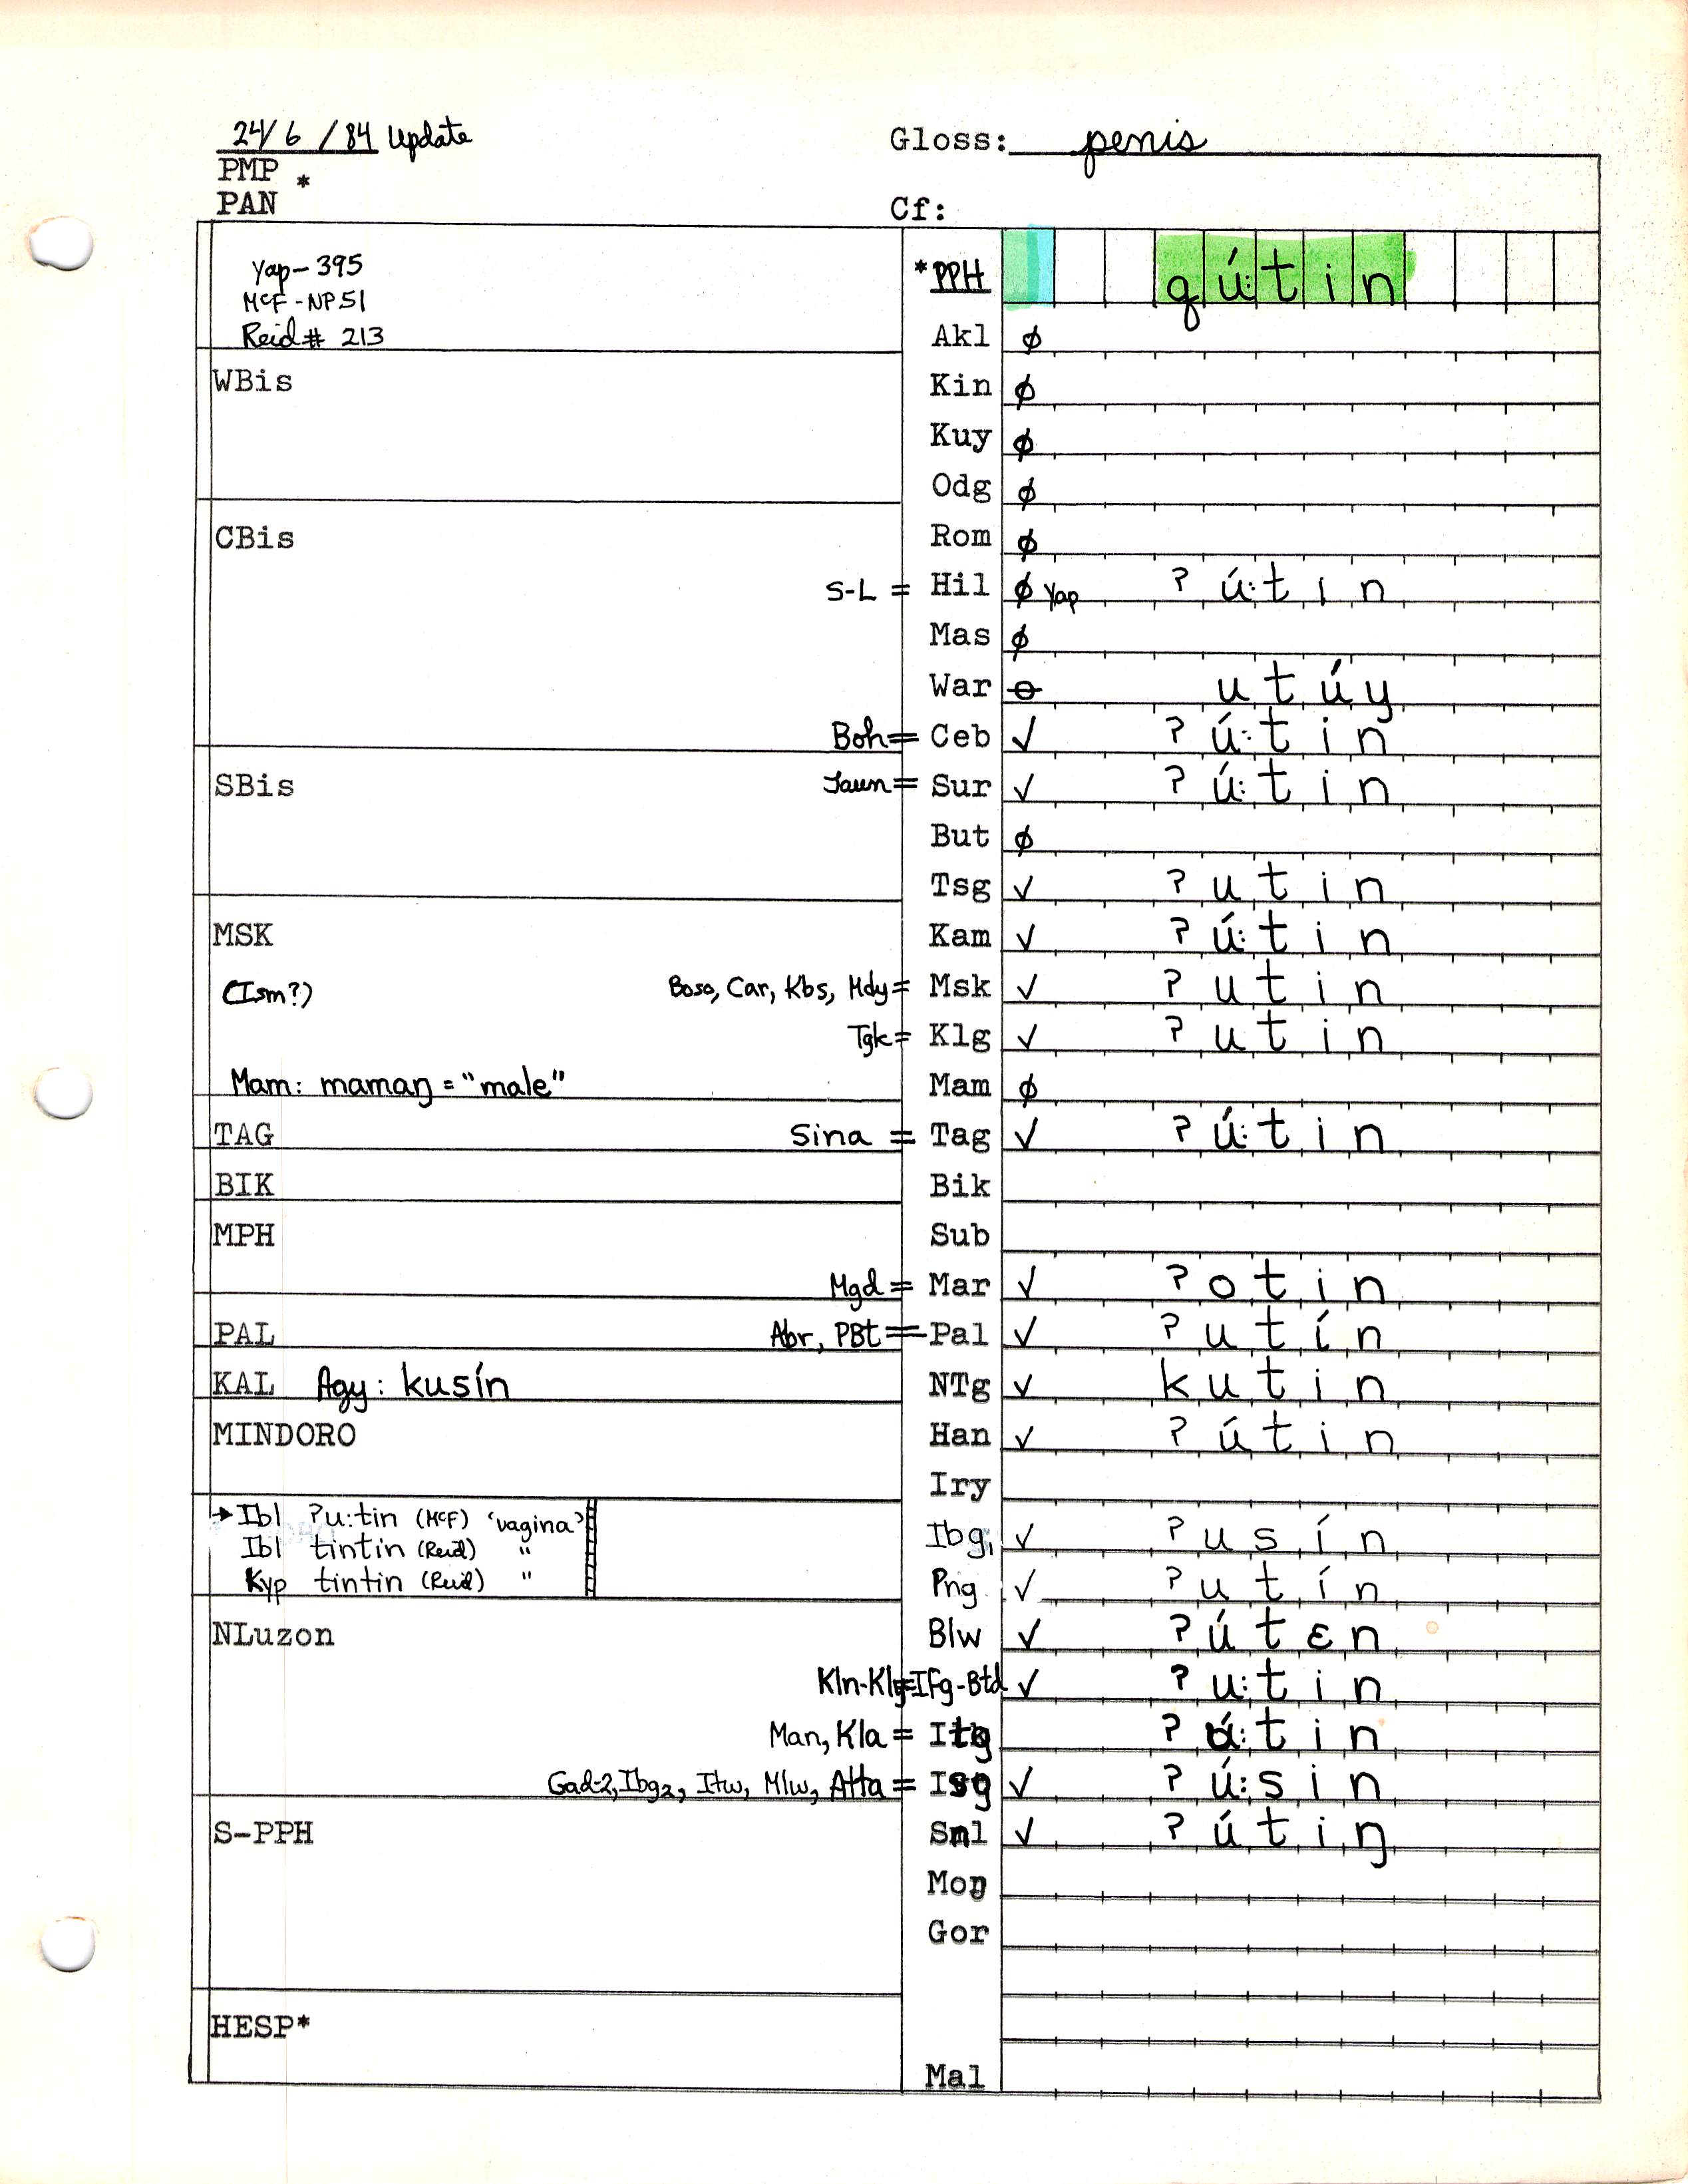 24/6/84 Update Gloss: penis
PMP *
PAN Cf:
Yap-395 *PPH qú:tin
McF-NP51
Reid# 213 Akl ∅
WBis Kin ∅
Kuy ∅
Odg ∅
CBis Rom ∅
S-L = Hil ∅ Yap ʔú:tin
Mas ∅
War utúy
Boh = Ceb ✓ ʔú:tin
SBis Jaun = Sur ✓ ʔú:tin
But ∅
Tsg ✓ ʔutin
MSK Kam ✓ ʔú:tin
(Ism?) Boso, Car, Kbs, Mdy = Msk ✓ ʔutin
Tgk = Klg ✓ ʔutin
Mam: mamaŋ = "male" Mam ∅
TAG Sina = Tag ✓ ʔú:tin
BIK Bik
MPH Sub
Mgd = Mar ✓ ʔotin
PAL Abr, PBt = Pal ✓ ʔutín
KAL Agy: kusín NTg ✓ kutin
MINDORO Han ✓ ʔútin
Iry
→Ibl ʔu:tin (McF) 'vagina' Ibg₁ ✓ ʔusín
Ibl tintin (Reid) "
Kyp tintin (Reid) " Png ✓ ʔutín
NLuzon Blw ✓ ʔútɛn
Kln-Klg = Ifg-Btd ✓ ʔu:tin
Man, Kla = Itg ʔú:tin
Gad-2, Ibg₂, Itw, Mlw, Atta = Isg ✓ ʔú:sin
S-PPH Snl ✓ ʔútiŋ
Moŋ
Gor
HESP*
Mal